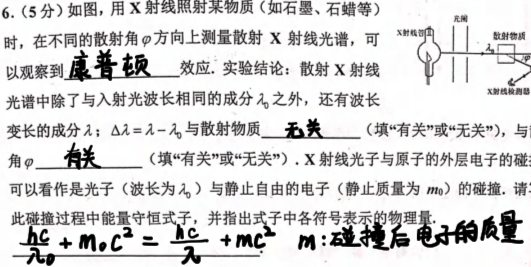 6.(5分)如图，用 X 射线照射某物质（如石墨、石蜡等）
时，在不同的散射角φ方向上测量散射 X 射线光谱，可
以观察到康普顿效应. 实验结论：散射 X 射线
光谱中除了与入射光波长相同的成分λ₀之外，还有波长
变长的成分λ；Δλ=λ-λ₀与散射物质无关（填“有关”或“无关”），与
角φ有关（填“有关”或“无关”）. X 射线光子与原子的外层电子的碰
可以看作是光子（波长为λ₀）与静止自由的电子（静止质量为 m₀）的碰撞. 请
此碰撞过程中能量守恒式子，并指出式子中各符号表示的物理量.
hc/λ₀ + m₀c² = hc/λ + mc² m:碰撞后电子的质量
X射线管
光阑
散射物质
λ₀
φ
X射线检测器